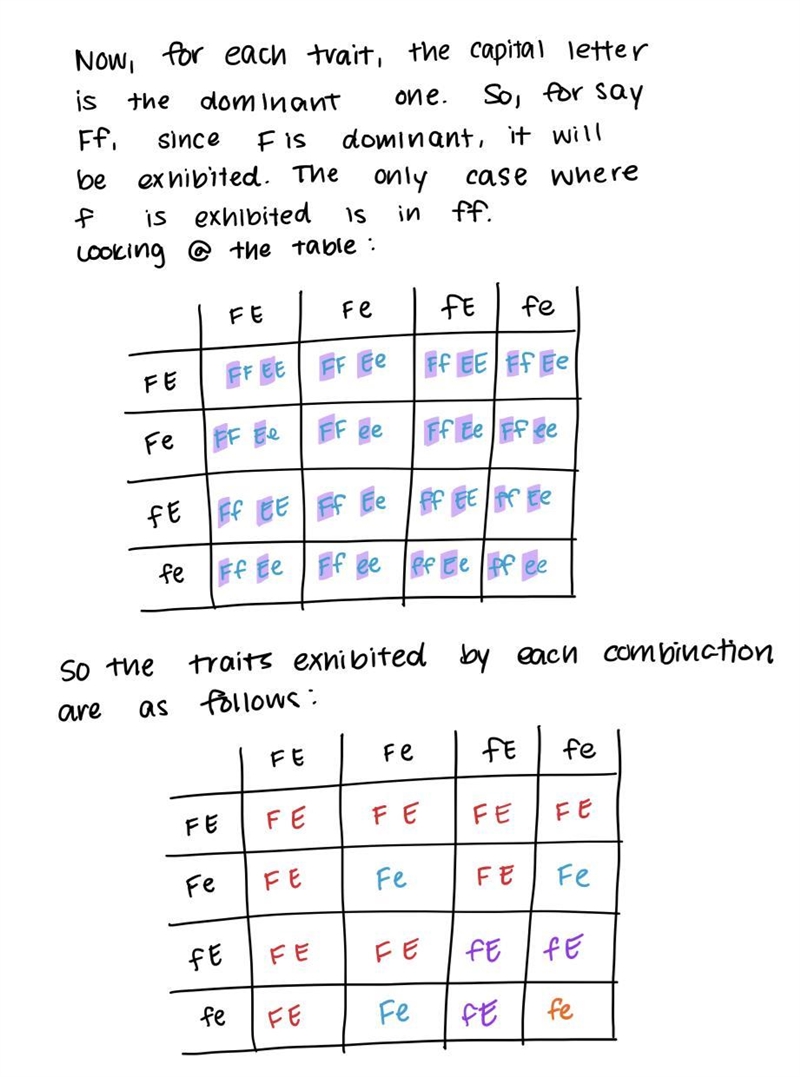 Now, for each trait, the capital letter
is the dominant one. So, for say
Ff, since F is dominant, it will
be exhibited. The only case where
f is exhibited is in ff.
Looking @ the table:
FE Fe fE fe
FE FF EE FF Ee Ff EE Ff Ee
Fe FF Ee FF ee Ff Ee Ff ee
fE Ff EE Ff Ee ff EE ff Ee
fe Ff Ee Ff ee ff Ee ff ee
So the traits exhibited by each combination
are as follows:
FE Fe fE fe
FE FE FE FE FE
Fe FE Fe FE Fe
fE FE FE fE fE
fe FE Fe fE fe